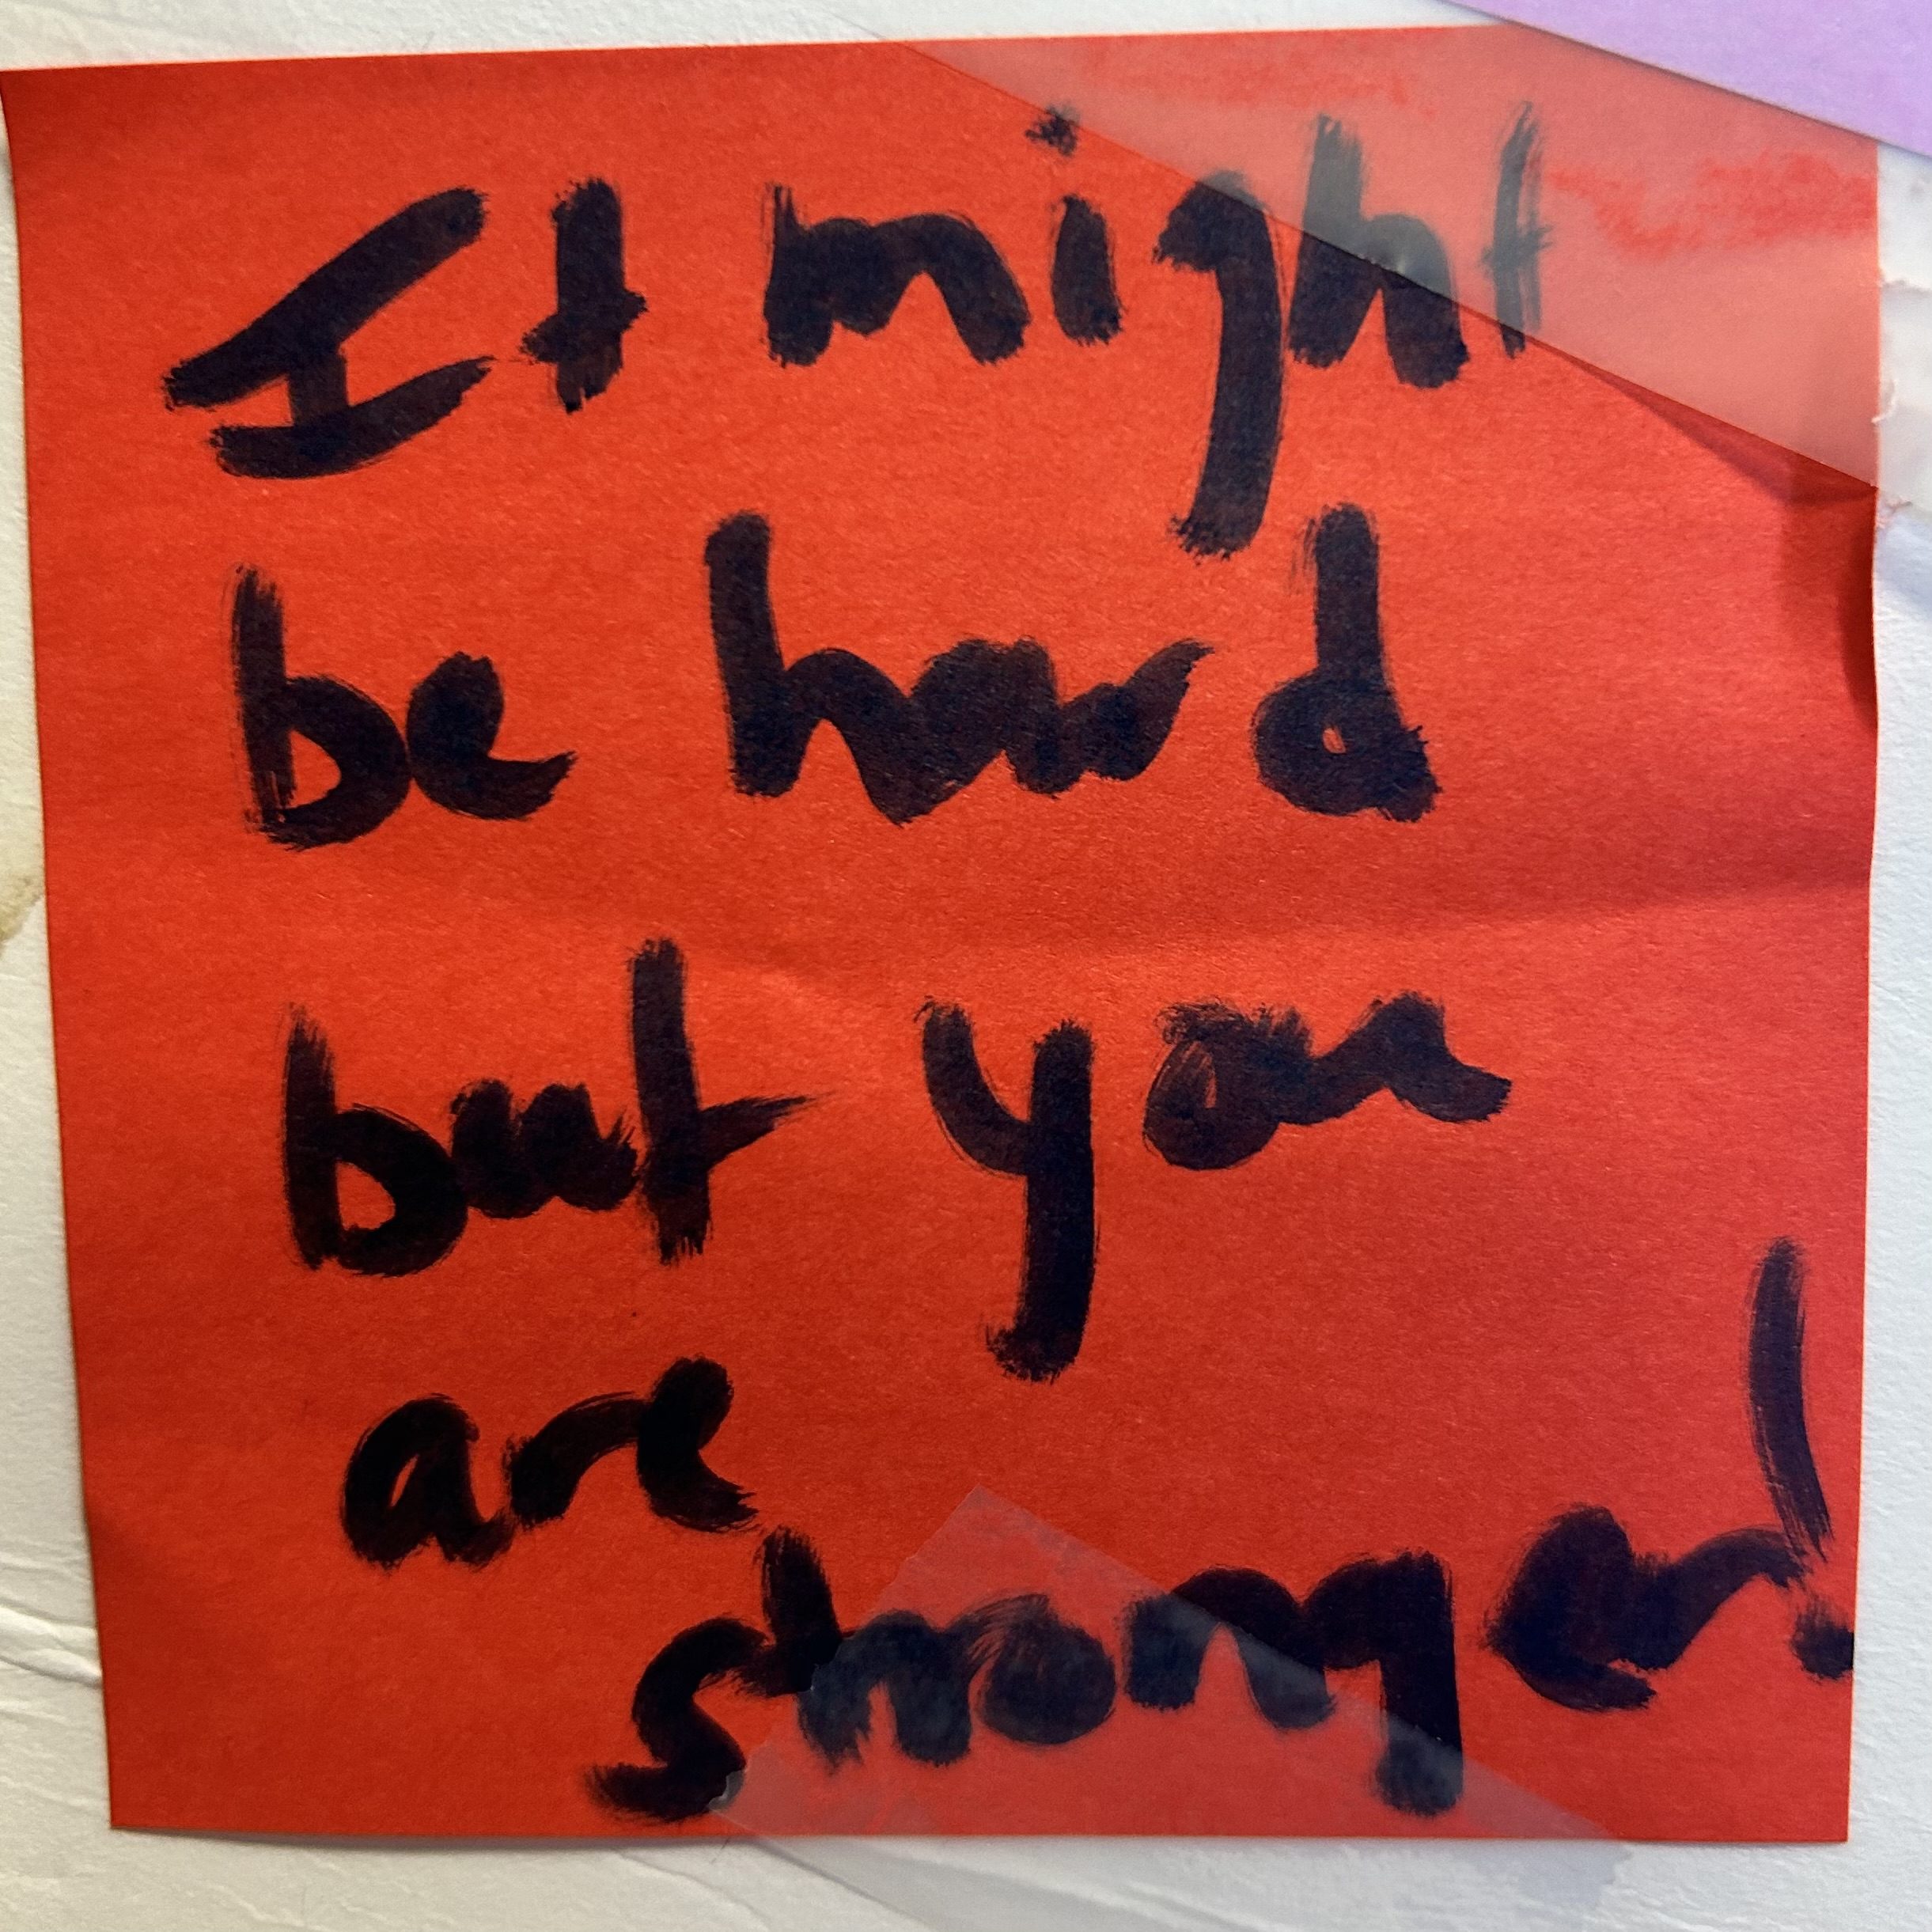 It might
be hard
but you
are
stronger!